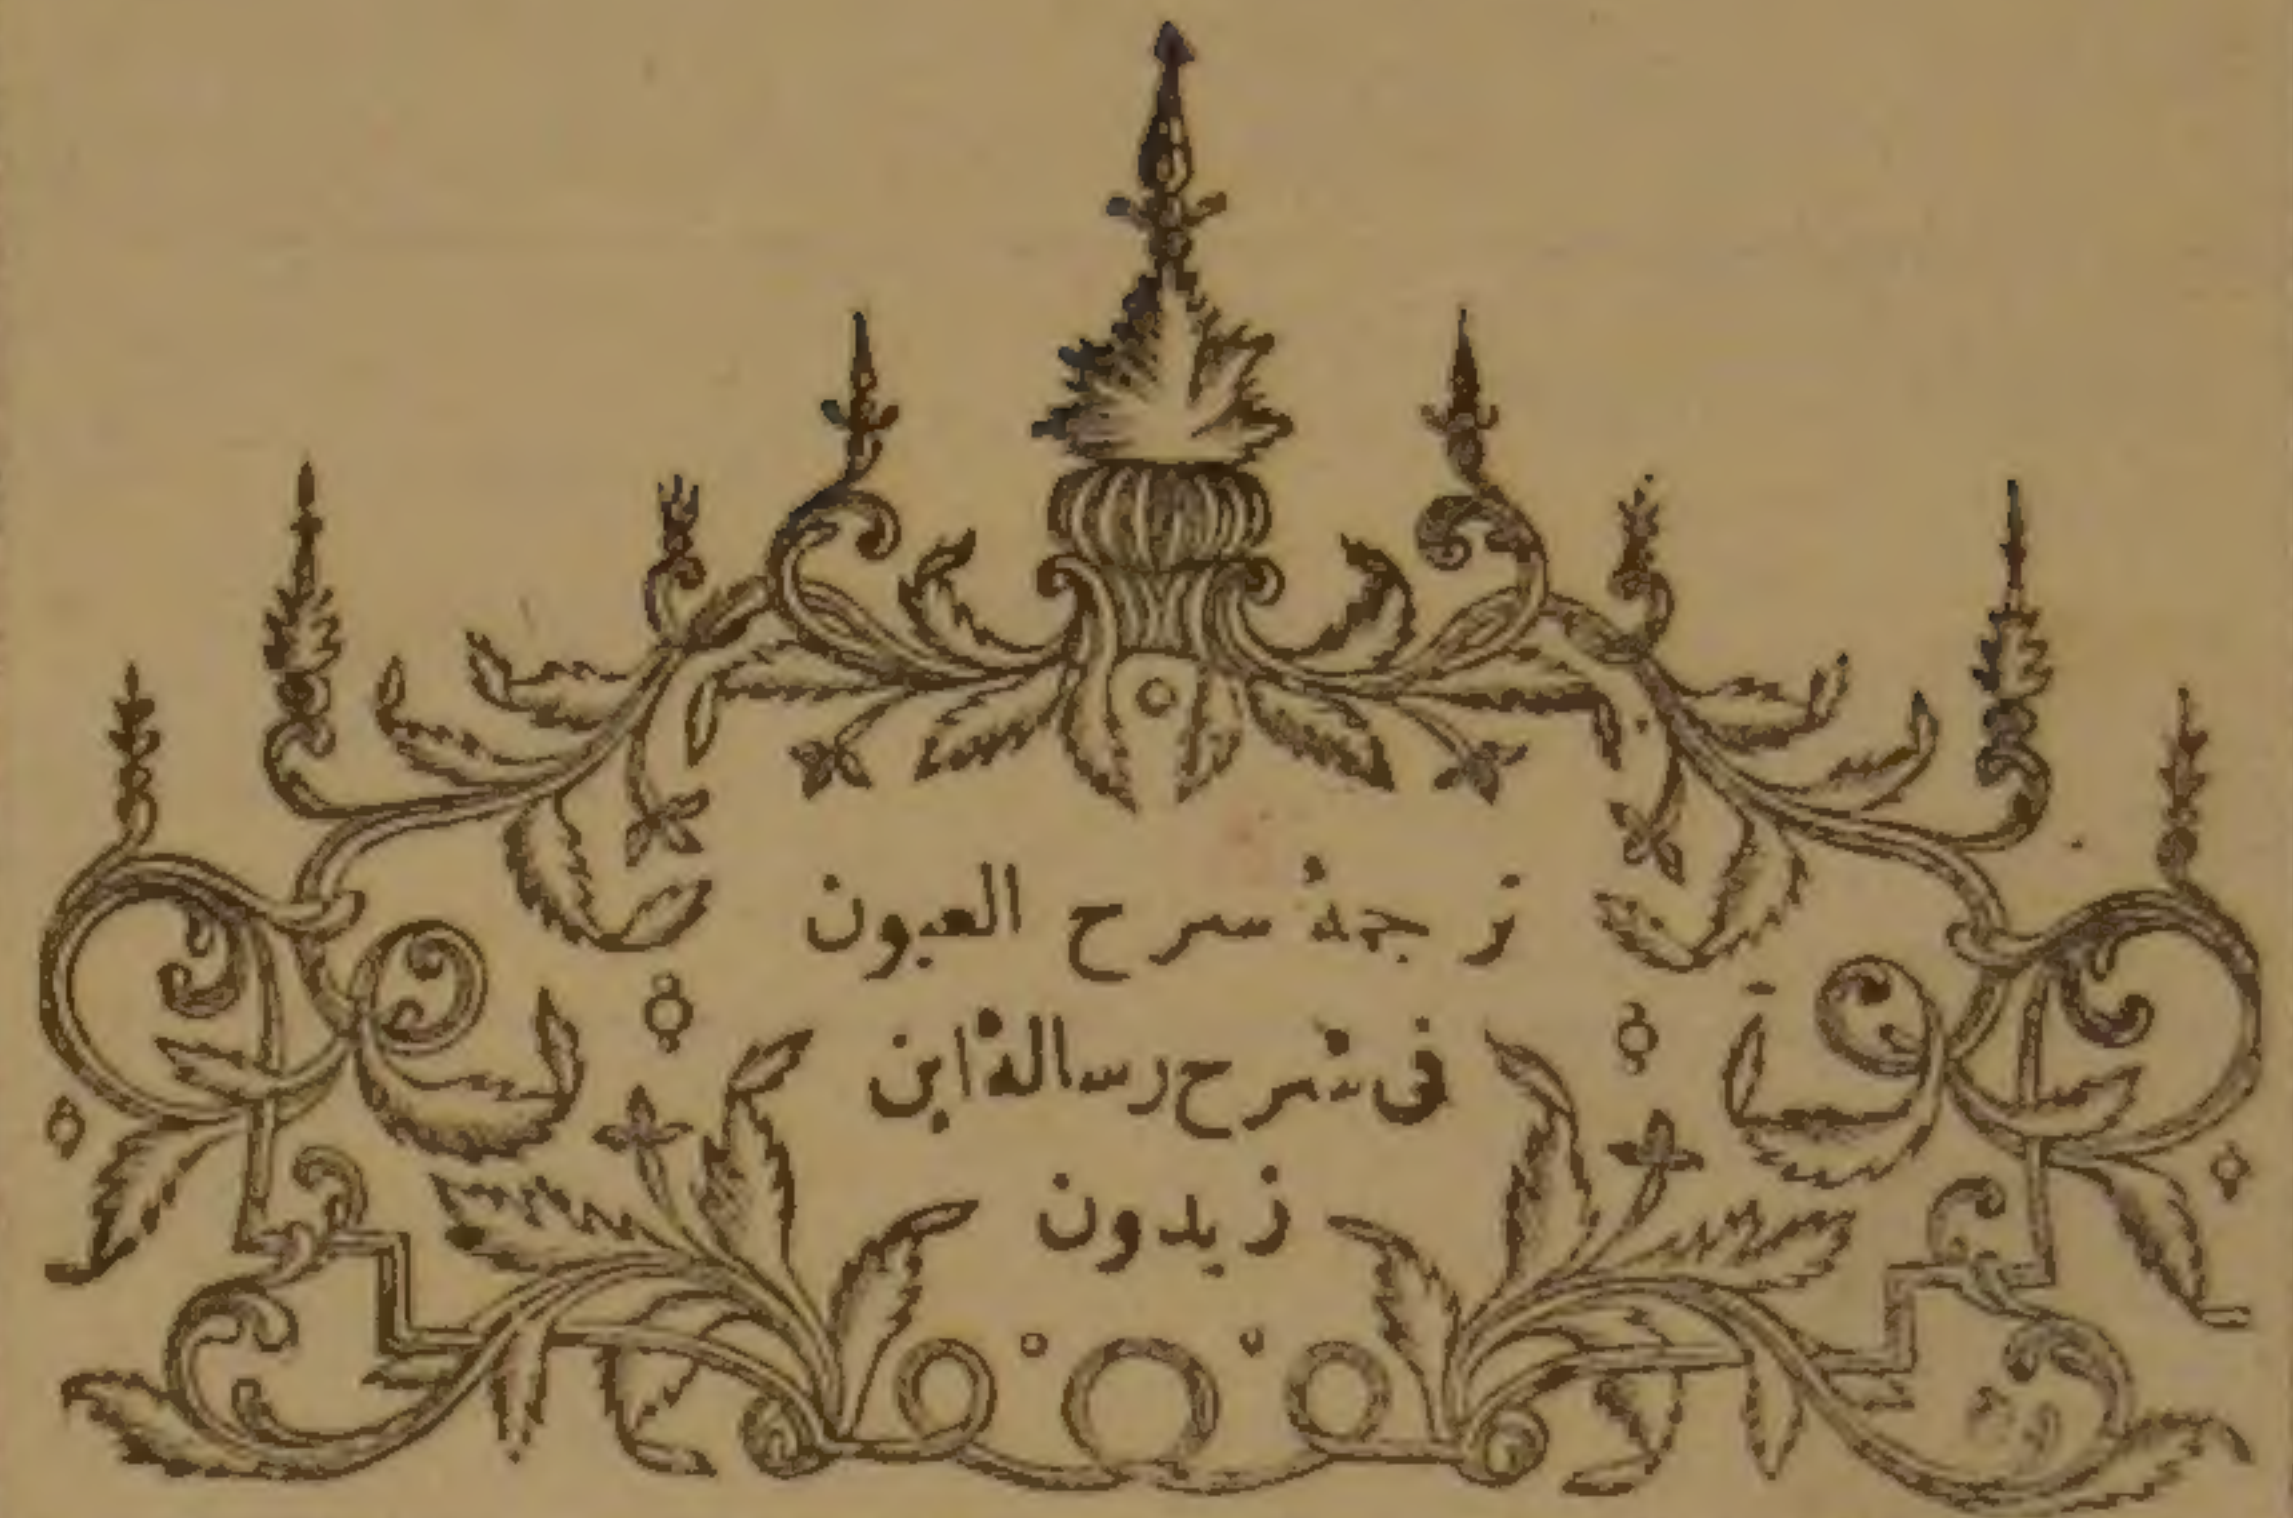 ترجمۀ سرح العيون
فى شرح رسالۀ ابن
زيدون